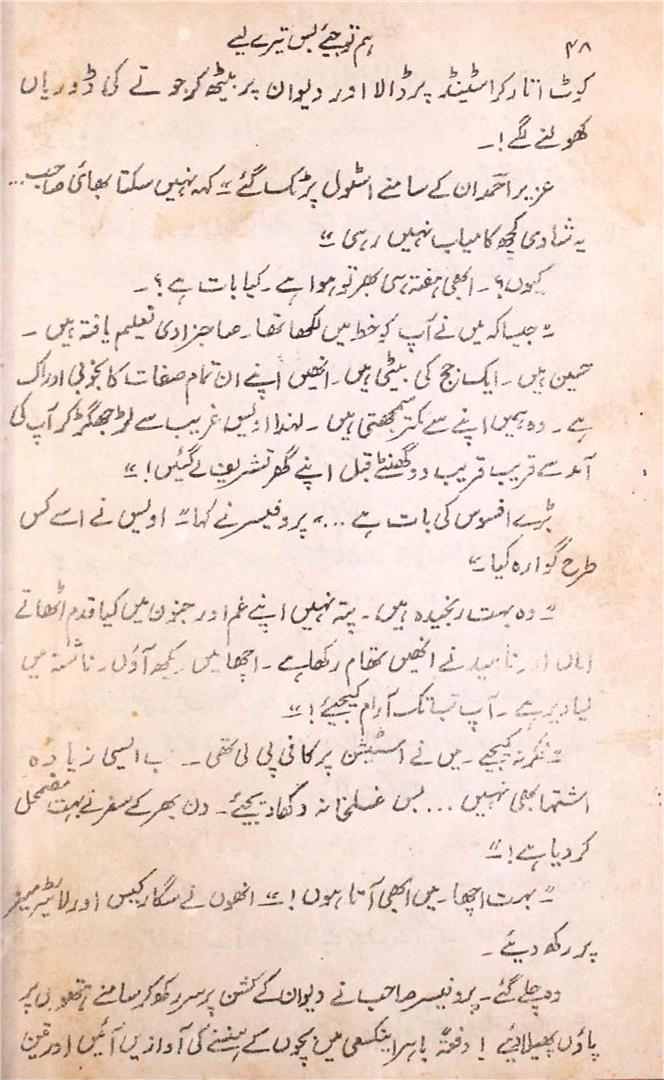 ۴۸ ہم تو جئے بس تیرے لیے
کوٹ اتار کر اسٹینڈ پر ڈالا اور دیوان پر بیٹھ کر جوتے کی ڈوریاں
کھولنے لگے!۔
عزیز احمد ان کے سامنے اسٹول پر ٹک سا گئے "کہہ نہیں سکتا بھائی صاحب...
یہ شادی کچھ کامیاب نہیں رہی"
کیوں؟۔ ابھی ہفتہ ہی بھر تو ہوا ہے۔ کیا بات ہے؟۔
"جیسا کہ میں نے آپ کو خط میں لکھا تھا۔ صاحبزادی تعلیم یافتہ ہیں۔
حسین ہیں۔ ایک جج کی بیٹی ہیں۔ انھیں اپنے ان تمام صفات کا بخوبی ادراک
ہے۔ وہ ہمیں اپنے سے کمتر سمجھتی ہیں۔ لہذا اویس غریب سے لڑ جھگڑ کر آپ کی
آمد سے قریب قریب دو گھنٹے قبل اپنے گھر تشریف لے گئیں!"
بڑے افسوس کی بات ہے..." پروفیسر نے کہا" اویس نے اسے کس
طرح گوارہ کیا"
"وہ بہت رنجیدہ ہیں۔ پتہ نہیں اپنے غم اور جنون میں کیا قدم اٹھاتے
اماں اور ناہید نے انھیں تھام رکھا ہے۔ اچھا میں دیکھ آؤں۔ ناشتہ میں
کیا دیر ہے۔ آپ تب تک آرام کیجیئے!"
"فکر نہ کیجیے۔ میں نے اسٹیشن پر کافی پی لی تھی۔ اب ایسی زیادہ
اشتہا بھی نہیں... بس غسلخانہ دکھا دیجیئے۔ دن بھر کے سفر نے بہت مضمحل
کر دیا ہے!"
"بہت اچھا۔ میں ابھی آتا ہوں!" انھوں نے سگار کیس اور لائیٹر میز
پر رکھ دیئے۔
وہ چلے گئے۔ پروفیسر صاحب نے دیوان کے کشن پر سر رکھ کر سامنے ہتھوں پر
پاؤں پھیلا دیئے! دفعتہً باہر اینکسی میں بچوں کے ہنسنے کی آوازیں آئیں اور تین